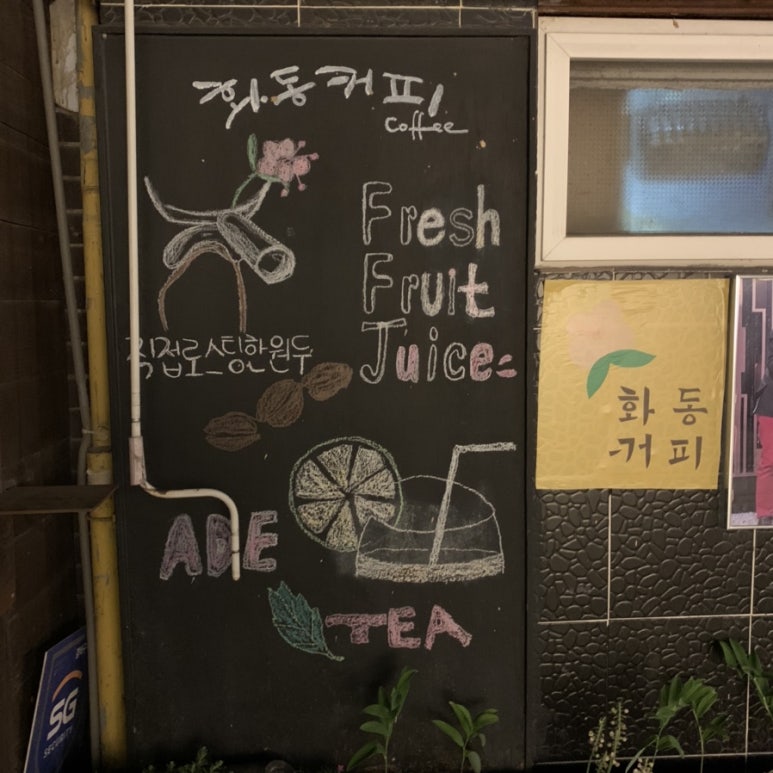 화동커피
Coffee
Fresh
Fruit
Juice
직접로스팅한원두
ADE
TEA
화동
커피
SG
SECURITY